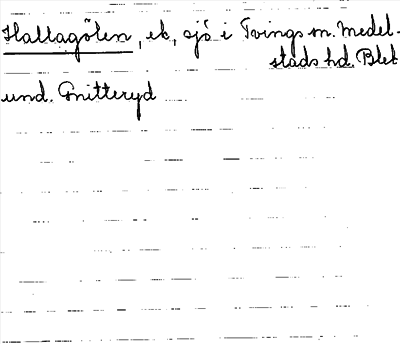 Hallagölen, ek, sjö i Tvings sn. Medel-
stads hd. Blek
und. Gnitteryd